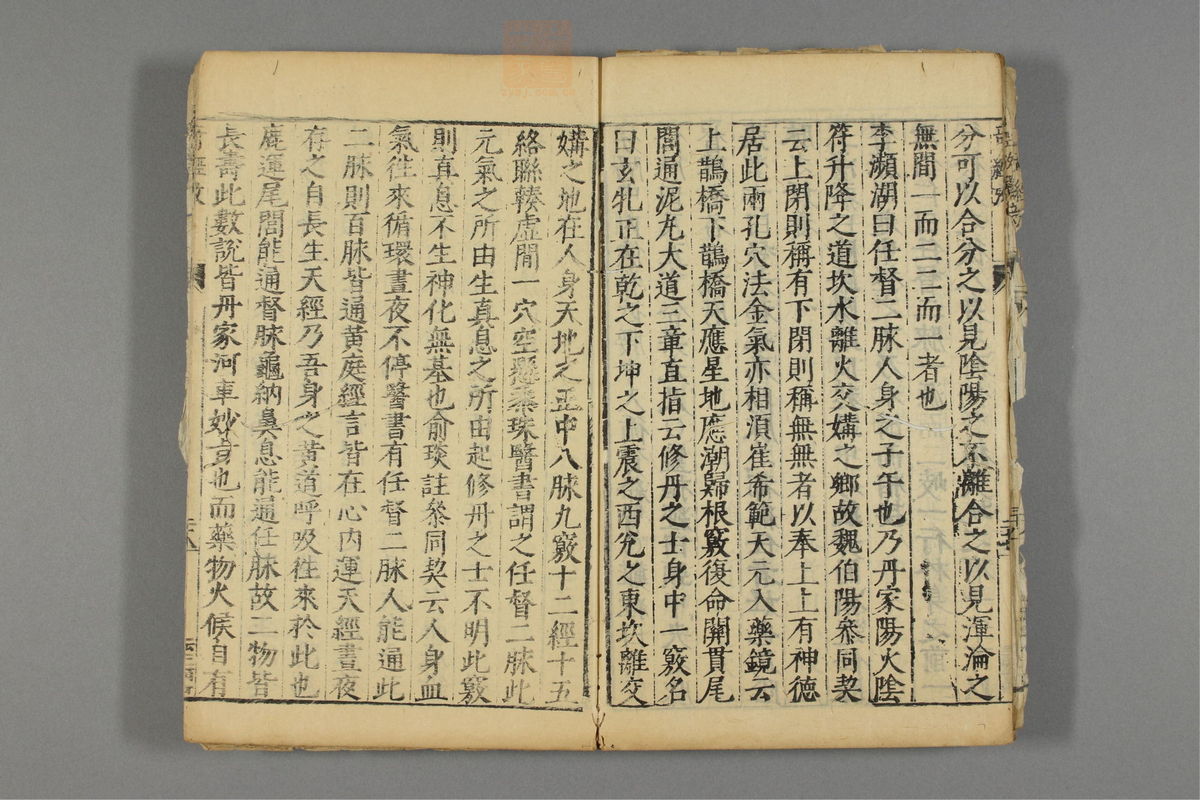 分可以合分之以見陰陽之不離合之以見渾淪之
無間一而二二而一者也
李瀕湖曰任督二脉人身之子午也乃丹家陽火陰
符升降之道坎水離火交媾之鄉故魏伯陽叅同契
云上閉則稱有下閉則稱無無者以奉上上有神德
居此兩孔穴法金氣亦相湏崔希範天元入藥鏡云
上鵲橋下鵲橋天應星地應潮歸根竅復命關貫尾
閭通泥丸大道三章直指云修丹之士身中一竅名
曰玄牝正在乾之下坤之上震之西兌之東坎離交
媾之地在人身天地之正中八脉九竅十二經十五
絡聯輳虛間一穴空懸黍珠醫書謂之任督二脉此
元氣之所由生真息之所由起修丹之士不明此竅
則真息不生神化無基也俞琰註叅同契云人身血
氣徃來循環晝夜不停醫書有任督二脉人能通此
二脉則百脉皆通黃庭經言皆在心內運天經晝夜
存之自長生天經乃吾身之黃道呼吸徃來於此也
鹿運尾閭能通督脉龜納鼻息能通任脉故二物皆
長壽此數說皆丹家河車妙旨也而藥物火候自有